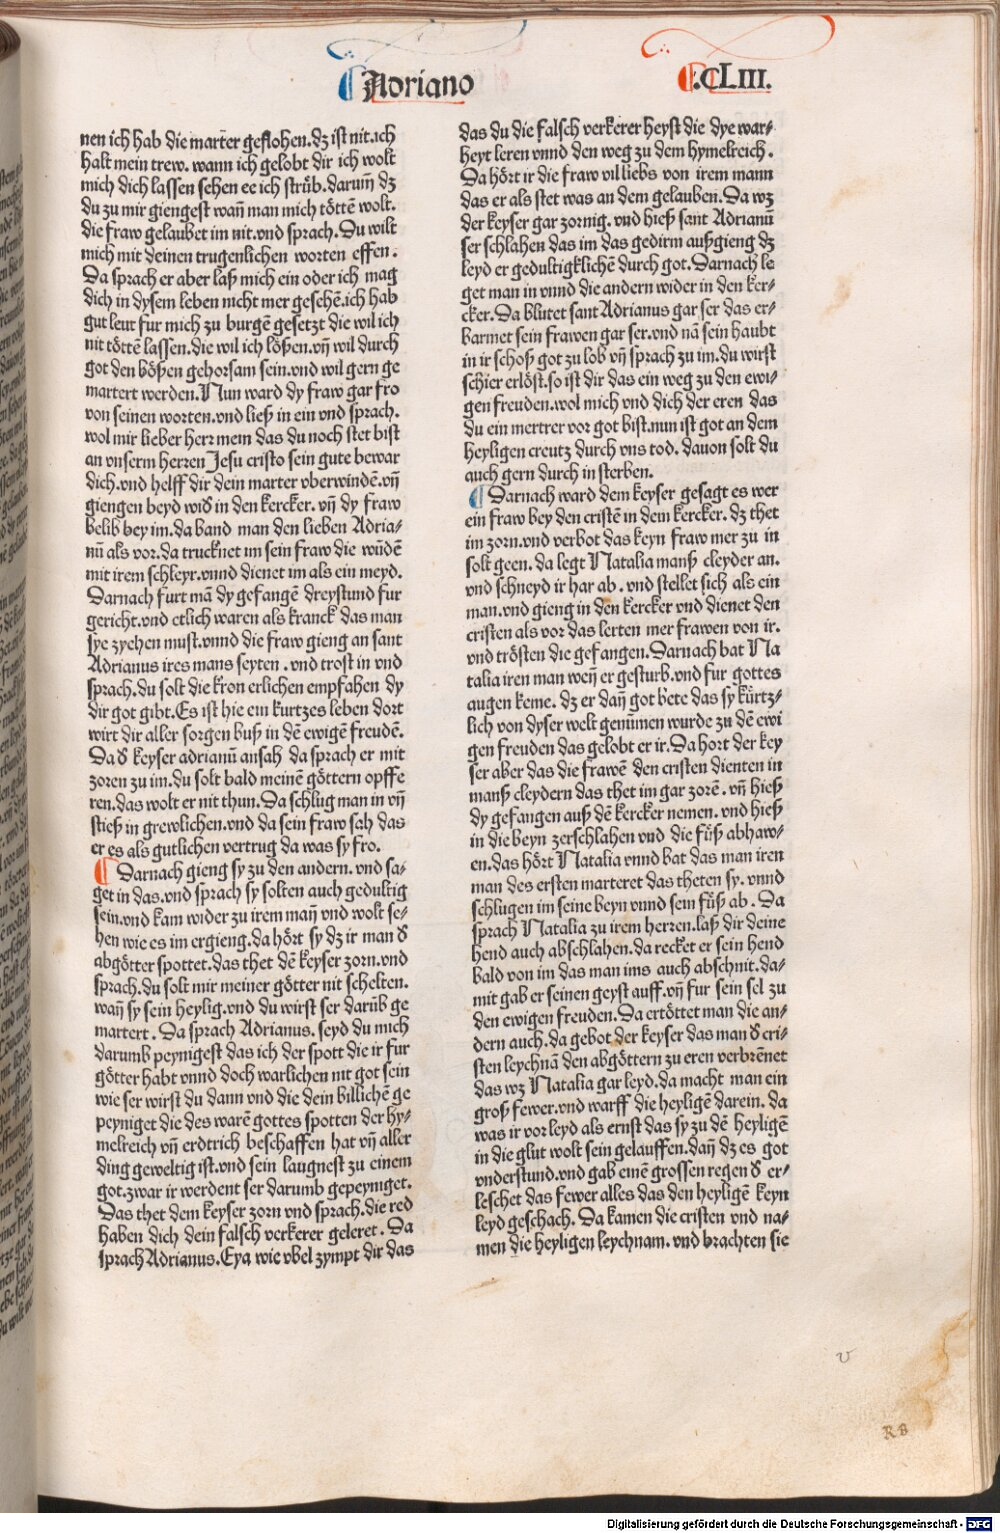 Adriano
.CLIII.
nen ich hab die marter geflohen.dz ist nit.ich
halt mein trew. wann ich gelobt dir ich wolt
mich dich lassen sehen ee ich stürb.darum̄ dz
du zu mir giengest wan̄ man mich töttē wolt.
die fraw gelaubet im nit.vnd sprach.Du wilt
mich mit deinen trugenlichen worten effen.
Da sprach er aber laß mich ein oder ich mag
dich in dysem leben nicht mer gesehē.ich hab
gut leut fur mich zu burgē gesetzt die wil ich
nit töttē lassen.die wil ich lößen.vn̄ wil durch
got den bößen gehorsam sein.vnd wil gern ge
martert werden.Nun ward dy fraw gar fro
von seinen worten.vnd ließ in ein vnd sprach.
wol mir lieber herr mein das du noch stet bist
an vnserm herren Jesu cristo sein gute bewar
dich.vnd helff dir dein marter vberwindē.vn̄
giengen beyd wid in den kercker. vn̄ dy fraw
belib bey im.da band man den lieben Adria⸗
nū als vor.da trucknet im sein fraw die wūdē
mit irem schleyr.vnnd dienet im als ein meyd.
Darnach furt mā dy gefangē dreystund fur
gericht.vnd etlich waren als kranck das man
sye zyehen must.vnnd die fraw gieng an sant
Adrianus ires mans seyten . vnd trost in vnd
sprach.du solt die kron erlichen empfahen dy
dir got gibt.Es ist hie ein kurtzes leben dort
wirt dir aller sorgen buß in dē ewigē freudē.
Da d keyser adrianū ansah da sprach er mit
zoren zu im.du solt bald meinē göttern opffe
ren.das wolt er nit thun.Da schlug man in vn̄
stieß in grewlichen.vnd da sein fraw sah das
er es als gutlichen vertrug da was sy fro.
Darnach gieng sy zu den andern. vnd sa⸗
get in das.vnd sprach sy solten auch gedultig
sein.vnd kam wider zu irem man̄ vnd wolt se⸗
hen wie es im ergieng.da hört sy dz ir man d
abgötter spottet.das thet dē keyser zorn.vnd
sprach.du solt mir meiner götter nit schelten.
wan̄ sy sein heylig.vnd du wirst ser darūb ge
martert. Da sprach Adrianus. seyd du mich
darumb peynigest das ich der spott die ir fur
götter habt vnnd doch warlichen nit got sein
wie ser wirst du dann vnd die dein billichē ge
peyniget die des warē gottes spotten der hy⸗
melreich vn̄ erdtrich beschaffen hat vn̄ aller
ding geweltig ist.vnd sein laugnest zu einem
got.zwar ir werdent ser darumb gepeyniget.
Das thet dem keyser zorn vnd sprach.die red
haben dich dein falsch verkerer geleret. Da
sprach Adrianus.Eya wie vbel zympt dir das
das du die falsch verkerer heyst die dye war⸗
heyt leren vnnd den weg zu dem hymelreich.
Da hört ir die fraw vil liebs von irem mann
das er als stet was an dem gelauben.Da wz
der keyser gar zornig. vnd hieß sant Adrianū
ser schlahen das im das gedirm außgieng dz
leyd er gedultigklichē durch got.Darnach le
get man in vnnd die andern wider in den ker⸗
cker.Da blutet sant Adrianus gar ser das er⸗
barmet sein frawen gar ser.vnd nā sein haubt
in ir schoß got zu lob vn̄ sprach zu im.du wirst
schier erlöst.so ist dir das ein weg zu den ewi⸗
gen freuden.wol mich vnd dich der eren das
du ein mertrer vor got bist.nun ist got an dem
heyligen creutz durch vns tod. dauon solt du
auch gern durch in sterben.
Darnach ward dem keyser gesagt es wer
ein fraw bey den cristē in dem kercker. dz thet
im zorn.vnd verbot das keyn fraw mer zu in
solt geen. da legt Natalia manß cleyder an.
vnd schneyd ir har ab . vnd stellet sich als ein
man.vnd gieng in den kercker vnd dienet den
cristen als vor das lerten mer frawen von ir.
vnd trösten die gefangen.Darnach bat Na
talia iren man wen̄ er gesturb.vnd fur gottes
augen keme. dz er dan̄ got bete das sy kürtz⸗
lich von dyser welt genūmen wurde zu dē ewi
gen freuden das gelobt er ir.Da hort der key
ser aber das die frawē den cristen dienten in
manß cleydern das thet im gar zorē. vn̄ hieß
dy gefangen auß dē kercker nemen. vnd hieß
in die beyn zerschlahen vnd die füß abhaw⸗
en.das hört Natalia vnnd bat das man iren
man des ersten marteret das theten sy. vnnd
schlugen im seine beyn vnnd sein füß ab. Da
sprach Natalia zu irem herren.laß dir deine
hend auch abschlahen.da recket er sein hend
bald von im das man ims auch abschnit.da⸗
mit gab er seinen geyst auff.vn̄ fur sein sel zu
den ewigen freuden.Da ertöttet man die an⸗
dern auch.da gebot der keyser das man d cri⸗
sten leychnā den abgöttern zu eren verbrēnet
das wz Natalia gar leyd.da macht man ein
groß fewer.vnd warff die heyligē darein. da
was ir vor leyd als ernst das sy zu dē heyligē
in die glut wolt sein gelauffen.dan̄ dz es got
vnderstund.vnd gab einē grossen regen d er⸗
leschet das fewer alles das den heyligē keyn
leyd geschach. Da kamen die cristen vnd na⸗
men die heyligen leychnam. vnd brachten sie
v
R 8
Digitalisierung gefördert durch die Deutsche Forschungsgemeinschaft - DFG